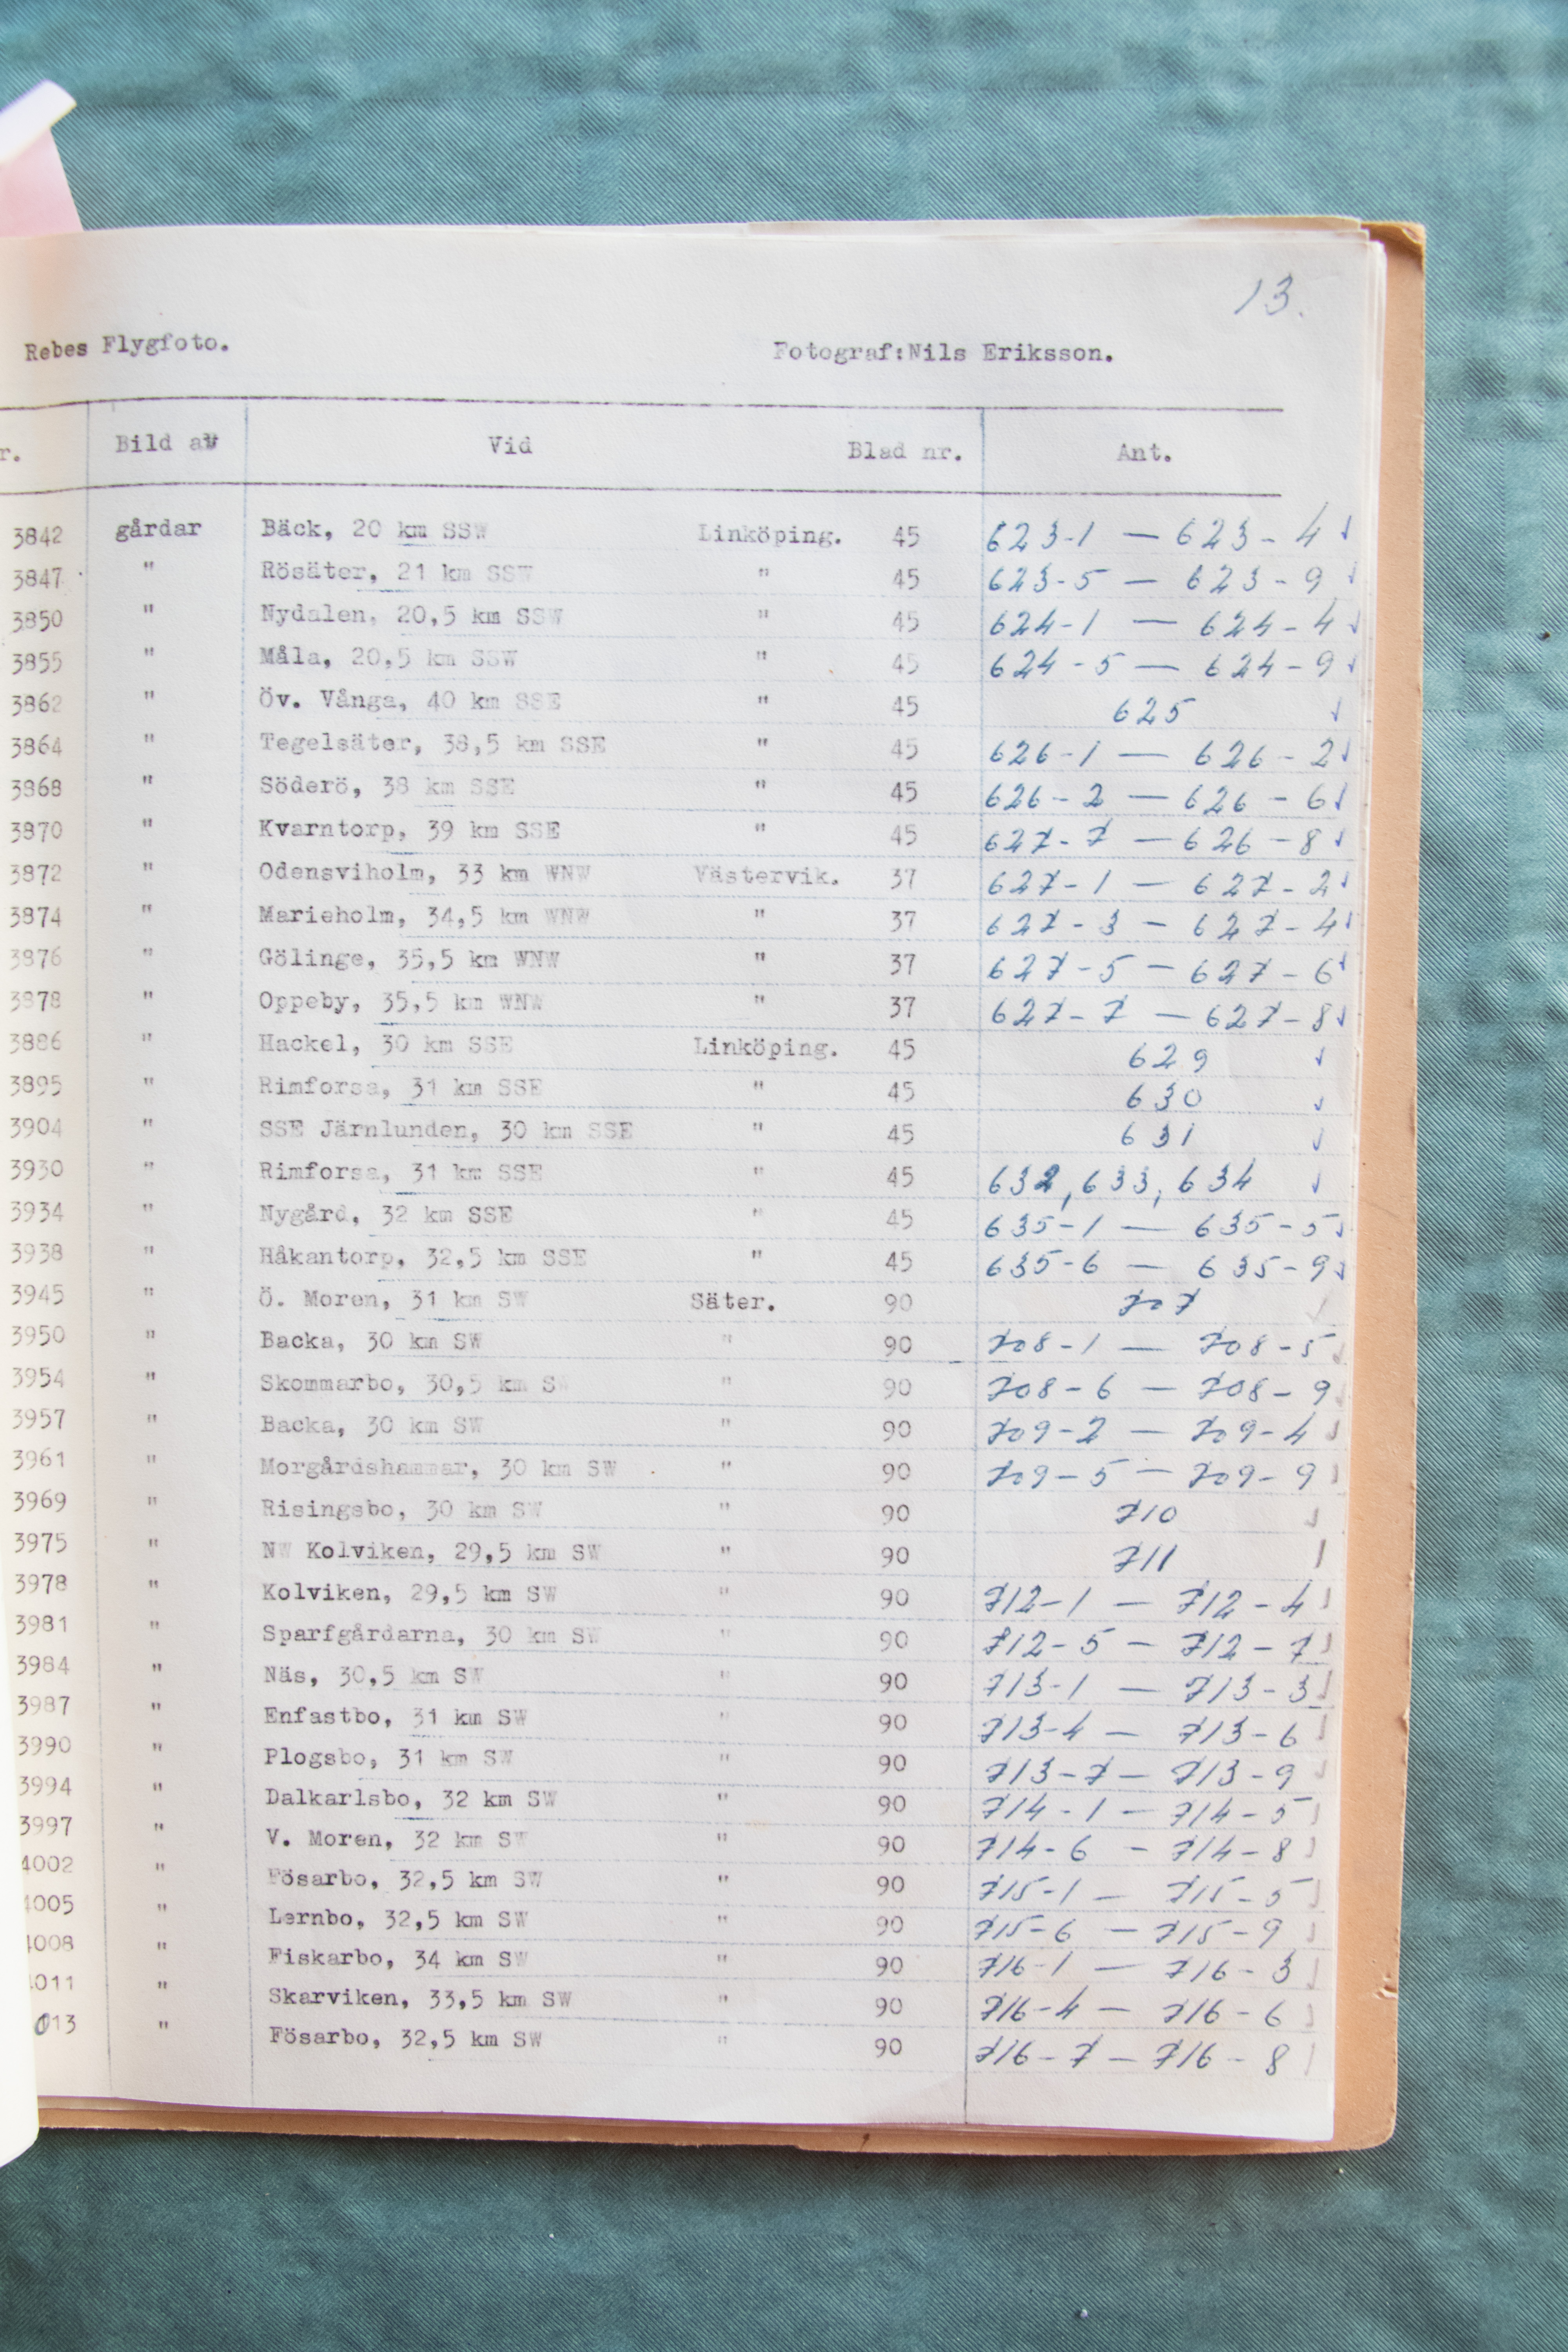 13.
Rebes Flygfoto. Fotograf:Nils Eriksson.
r. Bild av Vid Blad nr. Ant.
3842 gårdar Bäck, 20 km SSW Linköping. 45 623-1 — 623-4 ✓
3847 " Rösäter, 21 km SSW " 45 623-5 — 623-9 ✓
3850 " Nydalen, 20,5 km SSW " 45 624-1 — 624-4 ✓
3855 " Måla, 20,5 km SSW " 45 624-5 — 624-9 ✓
3862 " Öv. Vånga, 40 km SSE " 45 625 ✓
3864 " Tegelsäter, 38,5 km SSE " 45 626-1 — 626-2 ✓
3868 " Söderö, 38 km SSE " 45 626-2 — 626-6 ✓
3870 " Kvarntorp, 39 km SSE " 45 627-7 — 626-8 ✓
3872 " Odensviholm, 33 km WNW Västervik. 37 627-1 — 627-2 ✓
3874 " Marieholm, 34,5 km WNW " 37 627-3 — 627-4 ✓
3876 " Gölinge, 35,5 km WNW " 37 627-5 — 627-6 ✓
3878 " Oppeby, 35,5 km WNW " 37 627-7 — 627-8 ✓
3886 " Hackel, 30 km SSE Linköping. 45 629 ✓
3895 " Rimforsa, 31 km SSE " 45 630 ✓
3904 " SSE Järnlunden, 30 km SSE " 45 631 ✓
3930 " Rimforsa, 31 km SSE " 45 632, 633, 634 ✓
3934 " Nygård, 32 km SSE " 45 635-1 — 635-5 ✓
3938 " Håkantorp, 32,5 km SSE " 45 635-6 — 635-9 ✓
3945 " Ö. Moren, 31 km SW Säter. 90 707 ✓
3950 " Backa, 30 km SW " 90 708-1 — 708-5 ✓
3954 " Skommarbo, 30,5 km SW " 90 708-6 — 708-9 ✓
3957 " Backa, 30 km SW " 90 709-2 — 709-4 ✓
3961 " Morgårdshammar, 30 km SW " 90 709-5 — 709-9 ✓
3969 " Risingsbo, 30 km SW " 90 710 ✓
3975 " NW Kolviken, 29,5 km SW " 90 711 ✓
3978 " Kolviken, 29,5 km SW " 90 712-1 — 712-4 ✓
3981 " Sparfgårdarna, 30 km SW " 90 712-5 — 712-7 ✓
3984 " Näs, 30,5 km SW " 90 713-1 — 713-3 ✓
3987 " Enfastbo, 31 km SW " 90 713-4 — 713-6 ✓
3990 " Plogsbo, 31 km SW " 90 713-7 — 713-9 ✓
3994 " Dalkarlsbo, 32 km SW " 90 714-1 — 714-5 ✓
3997 " V. Moren, 32 km SW " 90 714-6 — 714-8 ✓
4002 " Fösarbo, 32,5 km SW " 90 715-1 — 715-5 ✓
4005 " Lernbo, 32,5 km SW " 90 715-6 — 715-9 ✓
4008 " Fiskarbo, 34 km SW " 90 716-1 — 716-3 ✓
011 " Skarviken, 33,5 km SW " 90 716-4 — 716-6 ✓
013 " Fösarbo, 32,5 km SW " 90 716-7 — 716-8 ✓